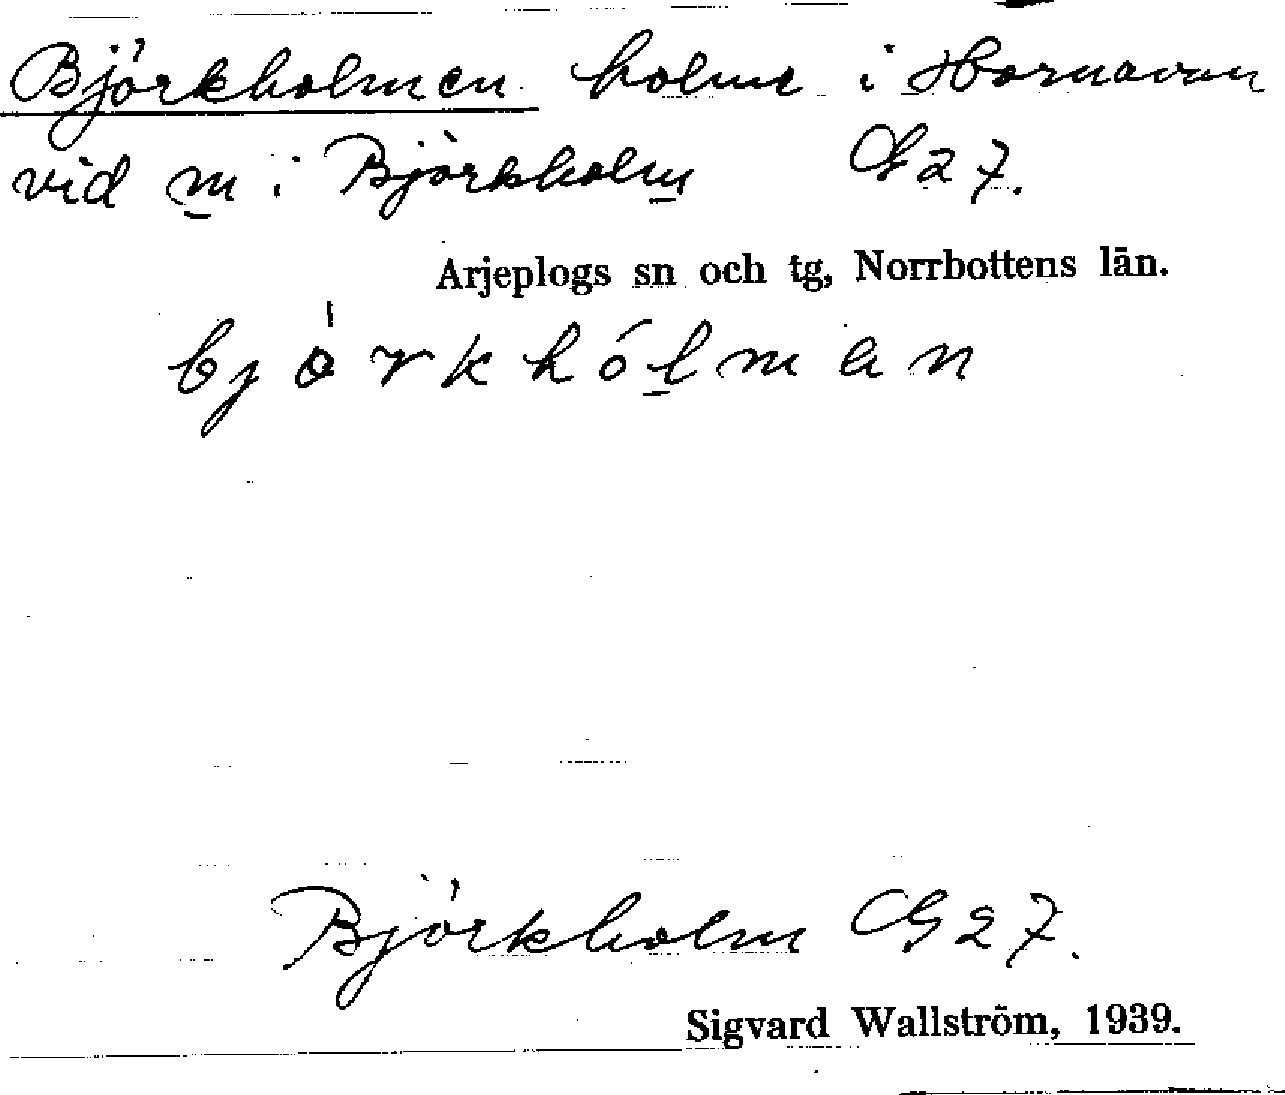 Björkholmen holme i Hornavan
vid m i Björkholm G27.
Arjeplogs sn och tg, Norrbottens län.
björkhólmen
Björkholm G27.
Sigvard Wallström, 1939.